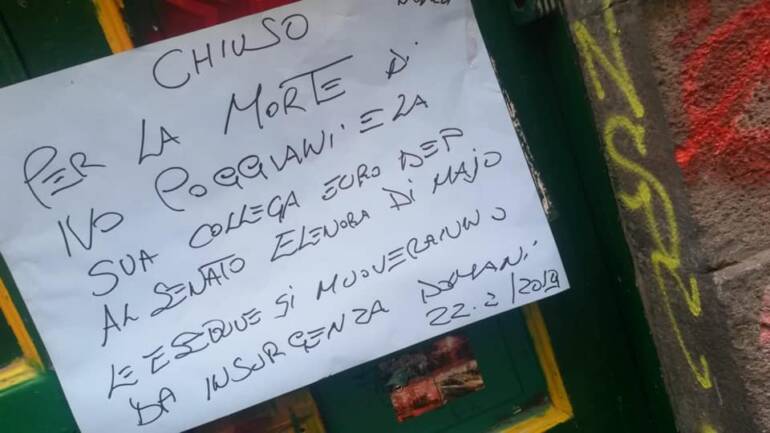 CHIUSO
PER LA MORTE DI
IVO POGGIANI E LA
SUA COLLEGA EURO DEP
AL SENATO ELENORA DI MAJO
LE ESEQUE SI MUOVERAUNNO
DA INSURGENZA DOMANI
22.2/2019